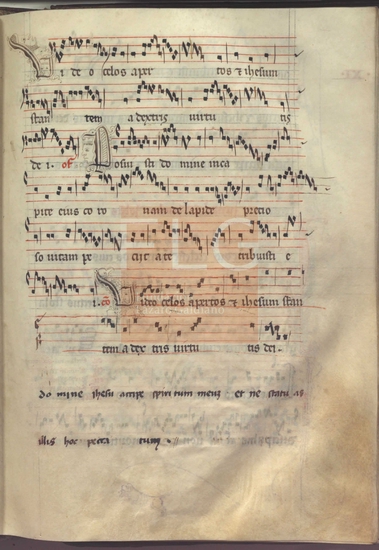 Vi de o celos aper tos & ihesum
stan tem a dextris virtu tis
de i. of Posui sti do mine in ca
pite eius co ro nam de lapide precio
so vitam pe ciit a te tribuisti e
i. co Video celos apertos & ihesum stan
tem a dex tris virtu tis dei.
do mine ihesu accipe spiritum meum et ne statu as
illis hoc pecca tum.